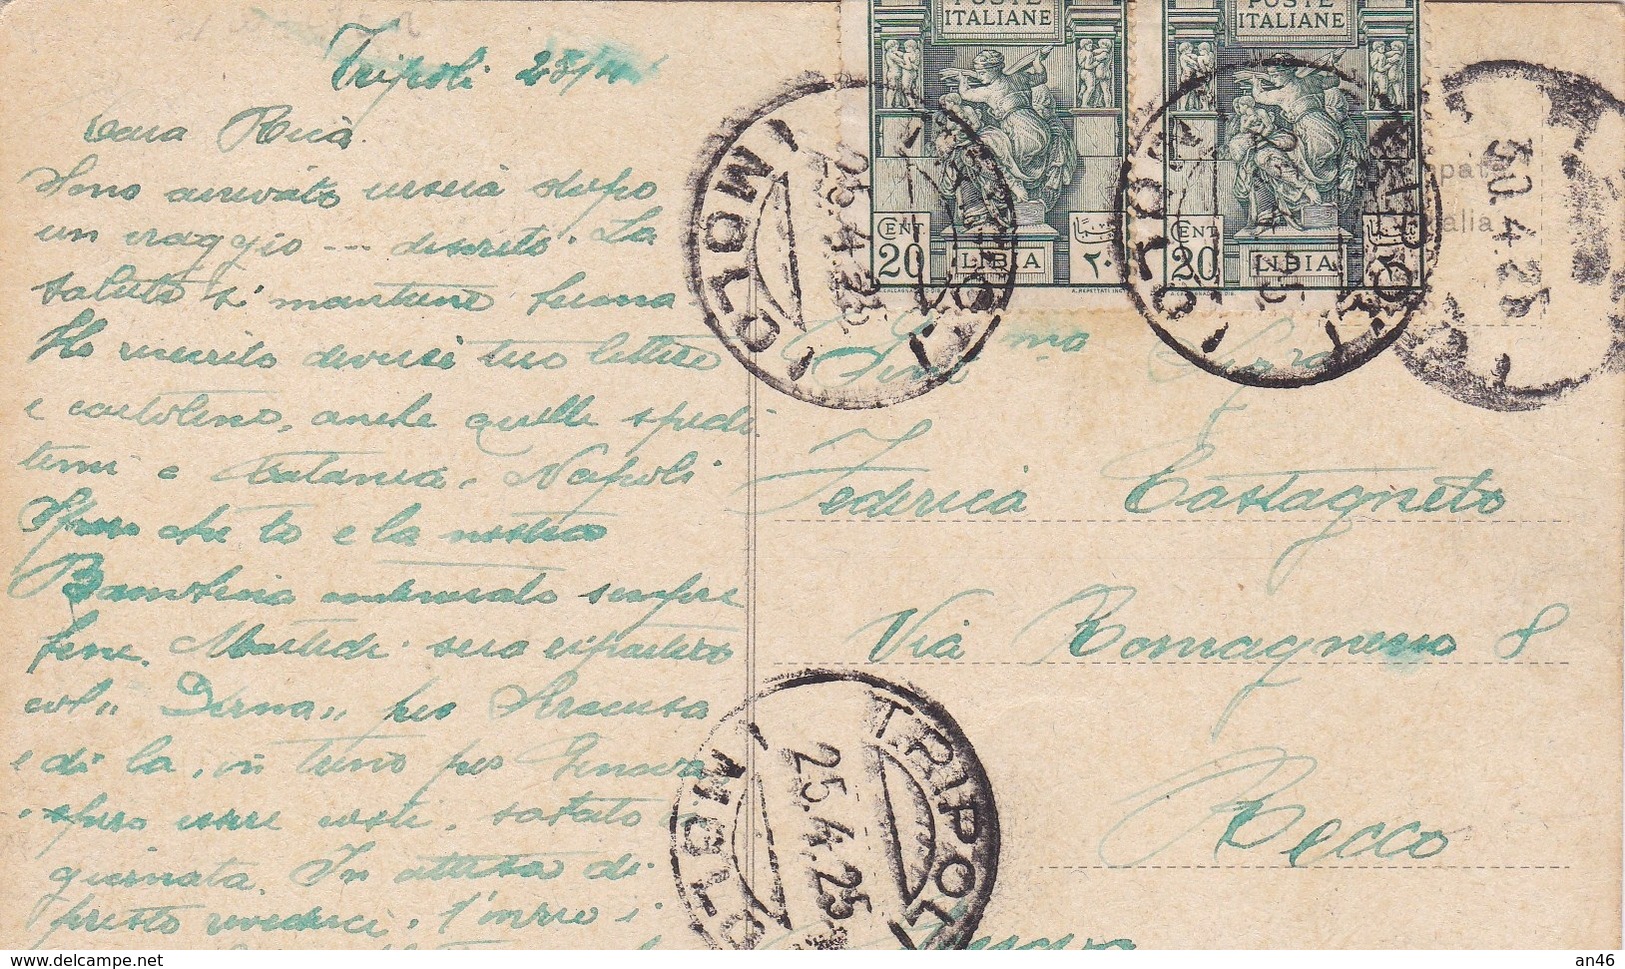 Tripoli 25/4
Cara Ricà
Sono arrivato issera dopo
un viaggio --- discreto. La
salute si mantiene buona
Ho ricevuto diverse tue lettere
e cartoline, anche quelle spedi
temi a Catania, Napoli
Spero che te e la nostra
Bambina
sempre
bene. Martedi sera ripartirò
col „ Derna „ per Siracusa
e di la, in treno per Genova,
spero essere costi, sabato in
giornata. In attesa di
presto rivederci, t'invio i
Gent ma Sig ra
Federica Castagneto
Via Romagneno 8
Recco
Genova
POSTE
ITALIANE
CENT
20
LIBIA
٢٠
A. REPETTATI INC.
POSTE
ITALIANE
CENT
20
LIBIA
TRIPOLI
25.4.25
TRIPOLI
25.4.25
30.4.25
TRIPOLI
25.4.25
delcampe.net
an46